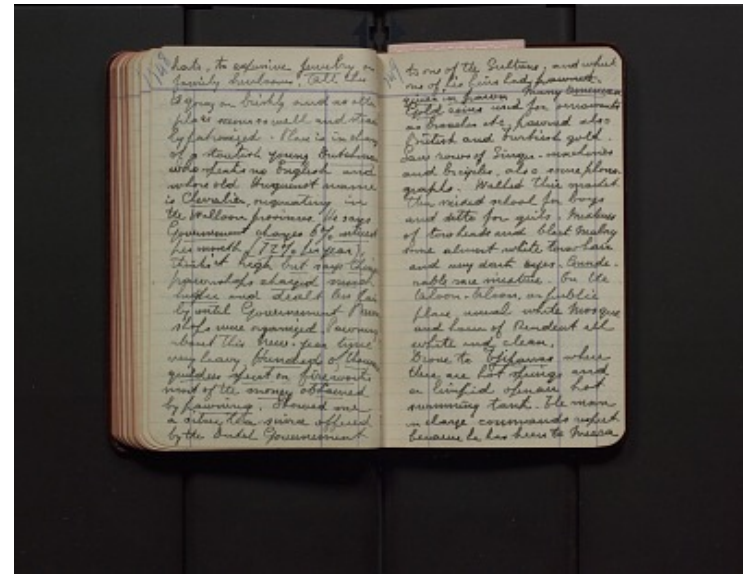 148
hats, to expensive jewelry or
family heirlooms. All this
is going on briskly and as the
place seems well and stead
ily patronized. Place is in charge
of a stoutish young Dutchman
who speaks no English and
whose old Huguenot name
is Chevalier, originating in
the Walloon provinces. He says
Government charges 6% interest
per month (72% per year),
thinks it high but says Chinese
pawnshops charged much
higher and dealt less fair
ly until Government Pawn
shops were organized. Pawning
about this new-year time
very heavy hundreds of thousand
guilders spent on fireworks
most of the money obtained
by pawning. Showed me
a silver tea service offered
by the Dutch Government
149
to one of the Sultans, and which
one of his heirs had pawned.
Many American
Gold coins used for ornaments
as bracelets etc, pawned also
British and Turkish gold.
Saw rows of Singer-machines
and bicycles, also some phono-
graphs. Walked thru market
Then visited school for boys
and ditto for girls. Mixture
of towheads and black Malay
some almost white tow hair
and very dark eyes.
rable race mixture. On the
Aloon-Aloon, or public
place, usual white Mosque
and house of Resident all
white and clean.
Drove to Tjipanas where
there are hot springs and
a limpid open air hot
swimming tank. The man
in charge commands respect
because he has been to Mecca